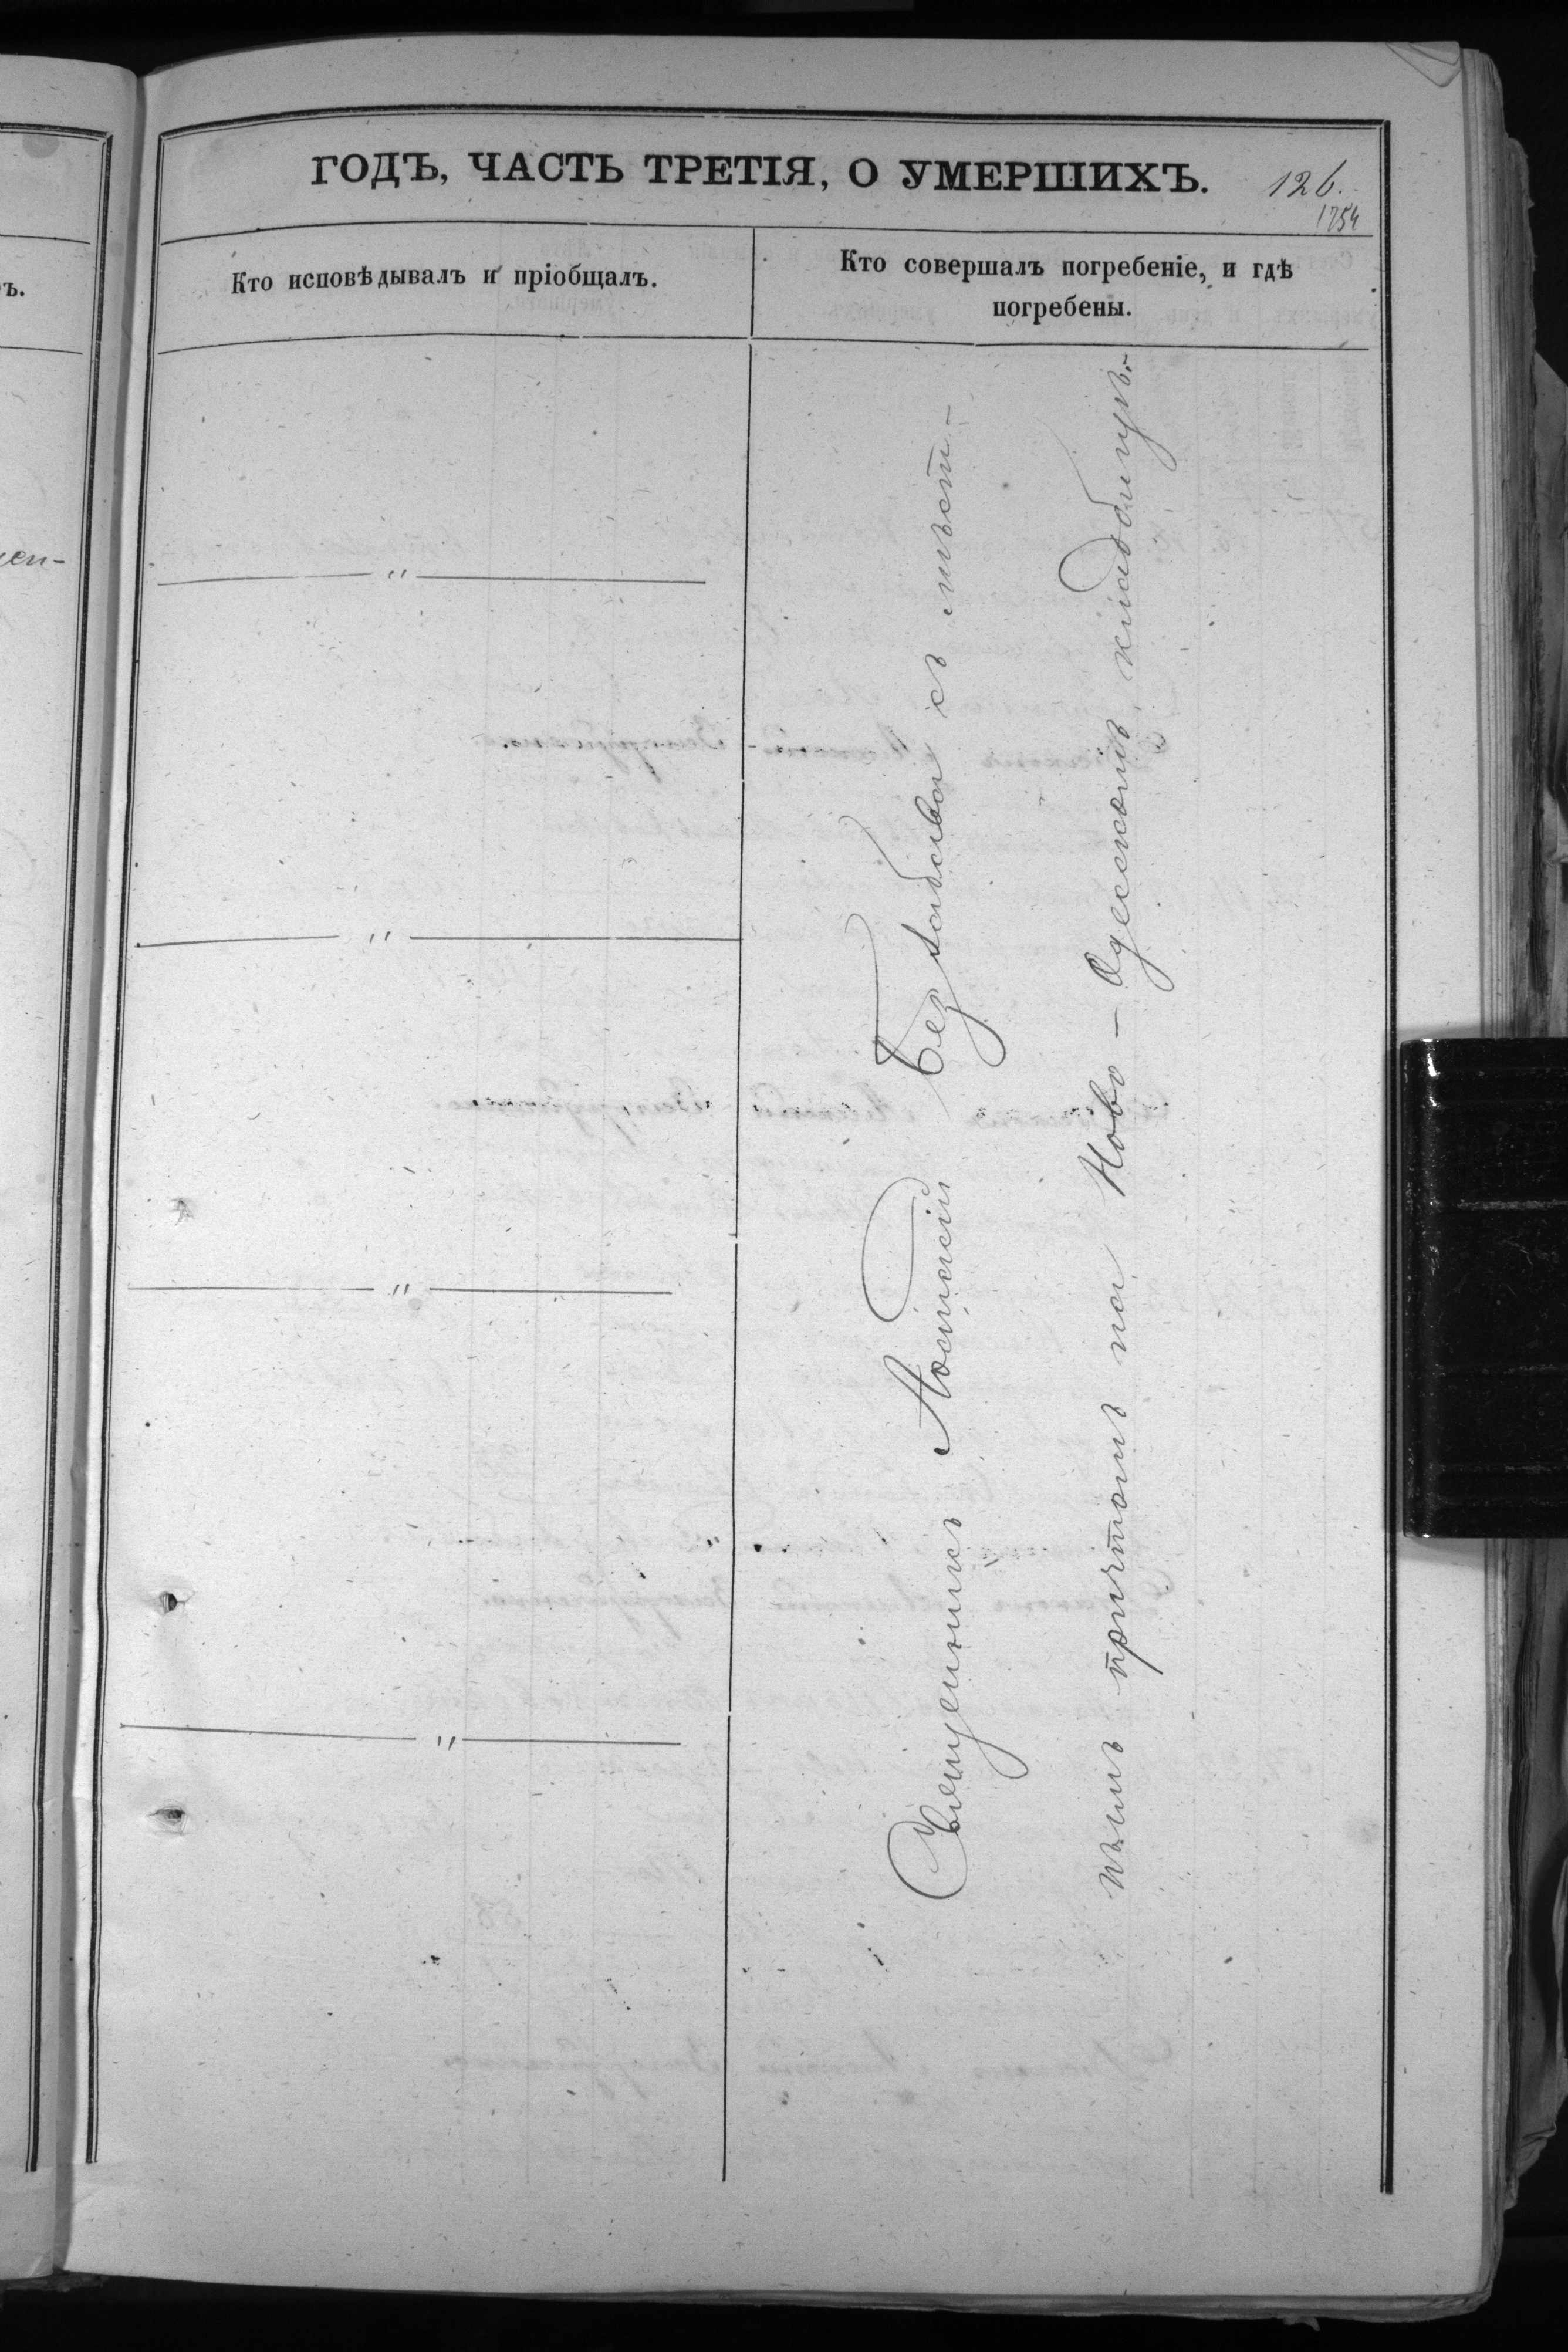 ГОДЪ, ЧАСТЬ ТРЕТІЯ, О УМЕРШИХЪ.
126.
1754
Кто исповѣдывалъ и пріобщалъ.
Кто совершалъ погребеніе, и гдѣ
погребены.
ъ.
чен-
— " —
— " —
— " —
— " —
Священникъ съ мѣст-
нымъ причтомъ на Ново-Одесскомъ кладбищѣ.